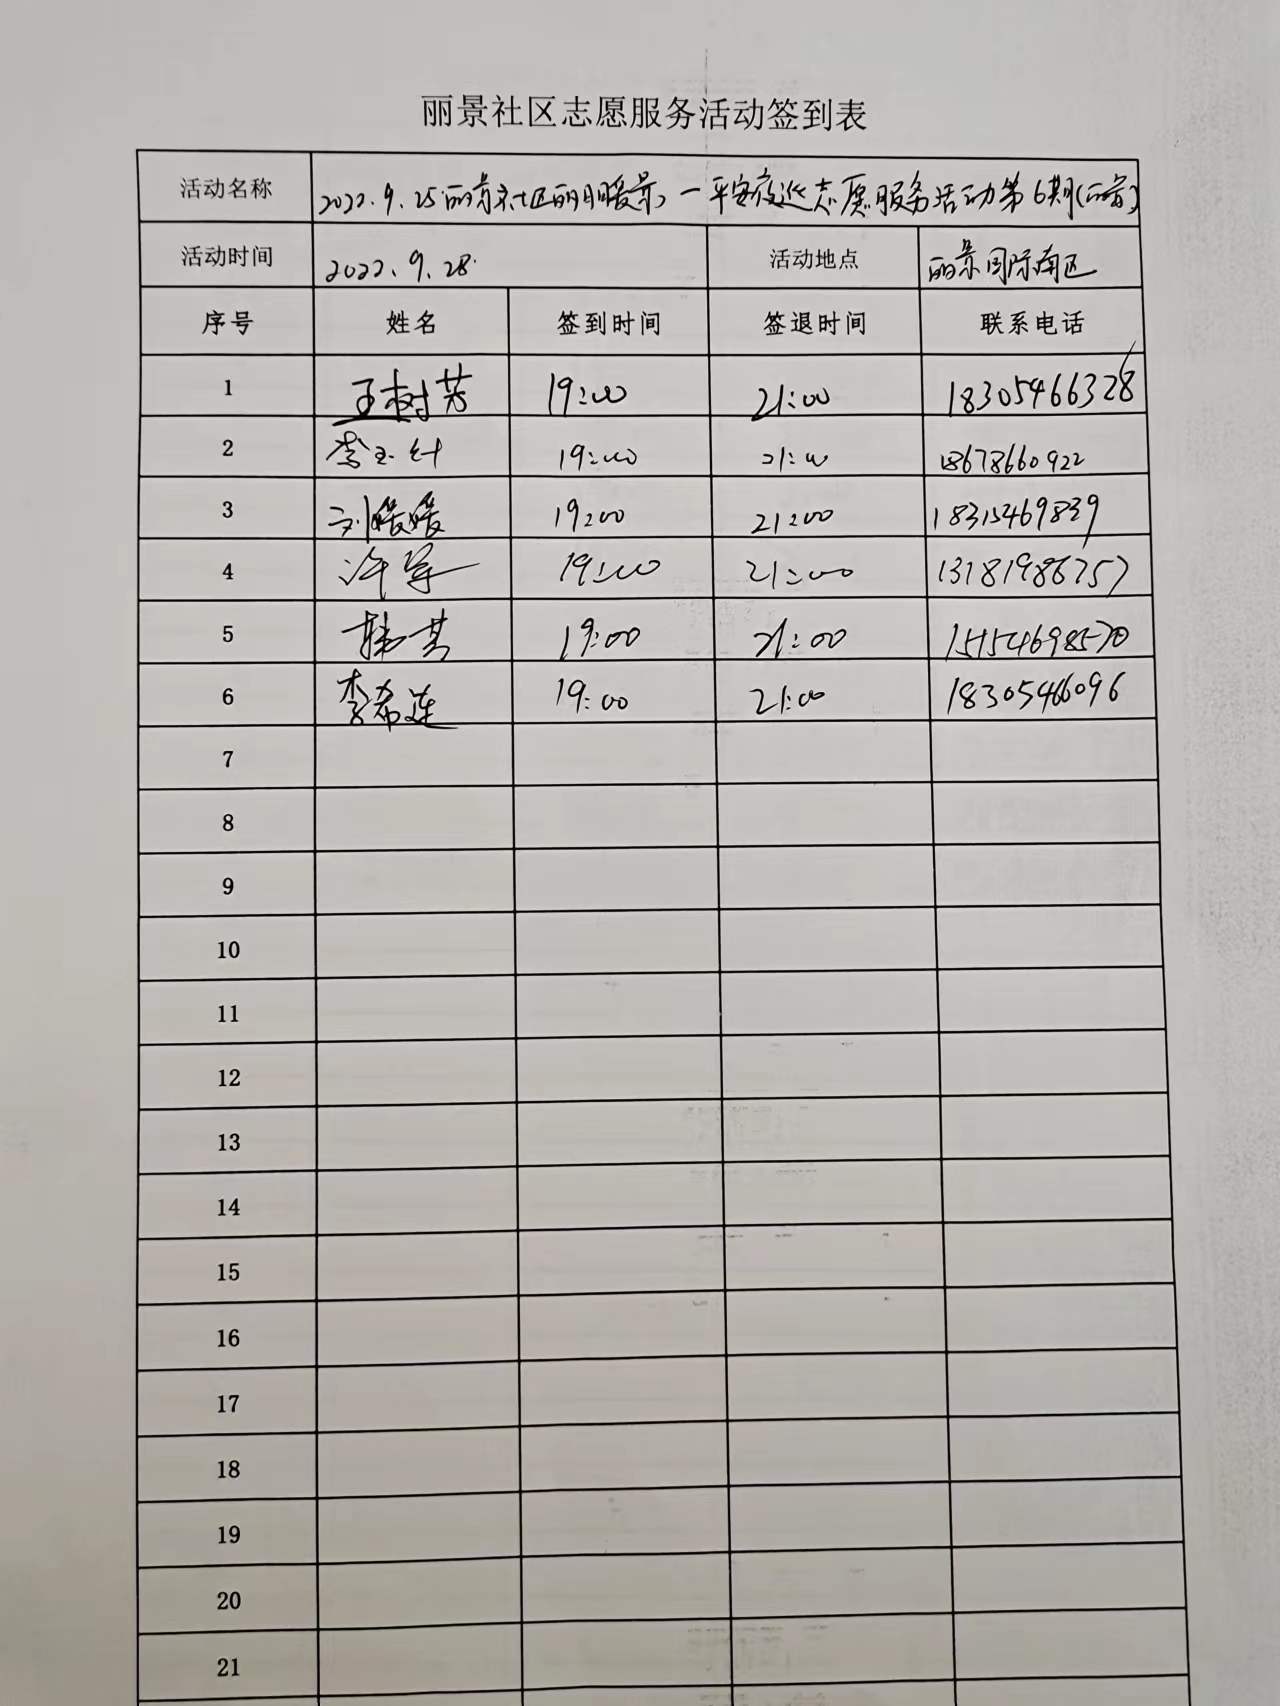 丽景社区志愿服务活动签到表
活动名称 2022.9.25丽景社区丽月暖景,一平安夜巡志愿服务活动第6期(丽景)
活动时间 2022.9.28. 活动地点 丽景国际南区
序号 姓名 签到时间 签退时间 联系电话
1 王树芳 19:00 21:00 18305466328
2 李玉 19:00 21:00 18678660922
3 刘媛媛 19:00 21:00 18315469839
4 许军 19:00 21:00 13181986757
5 韩芸 19:00 21:00 15154698570
6 李希莲 19:00 21:00 18305466096
7
8
9
10
11
12
13
14
15
16
17
18
19
20
21